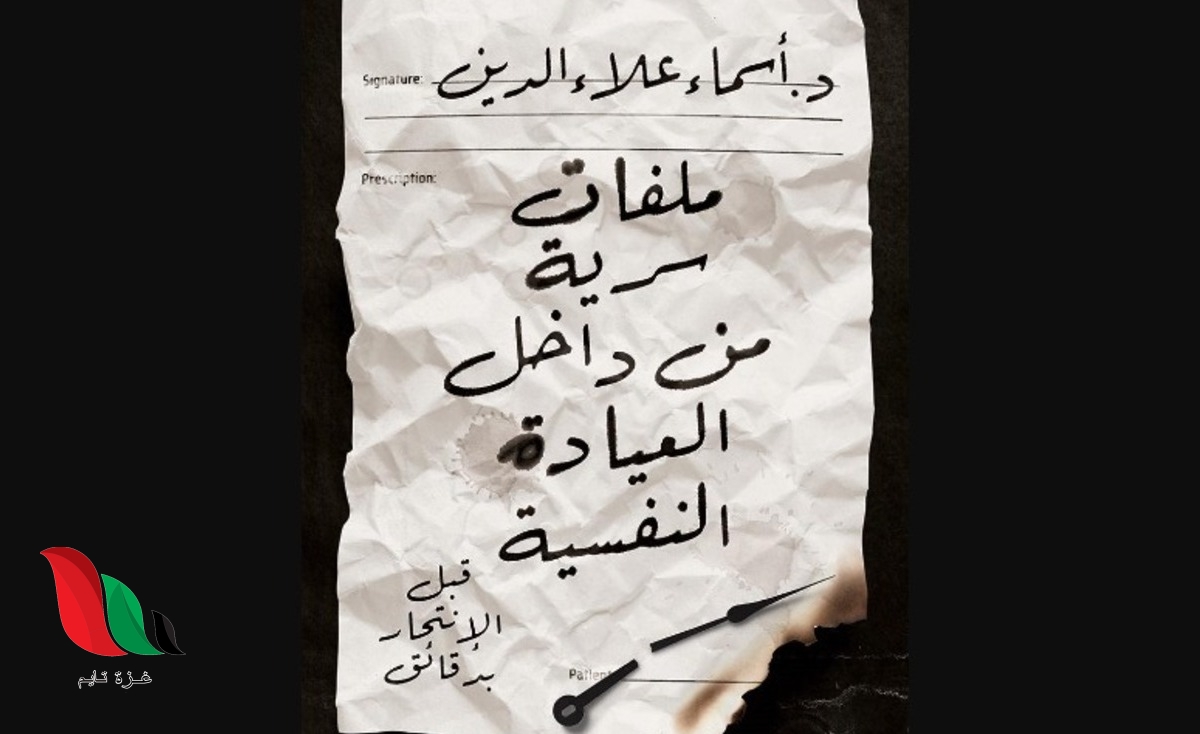 Signature: د. أسماء علاء الدين
Prescription:
ملفات
سرية
من داخل
العيادة
النفسية
قبل
الإنتحار
بدقائق
Patient
غزة تايم